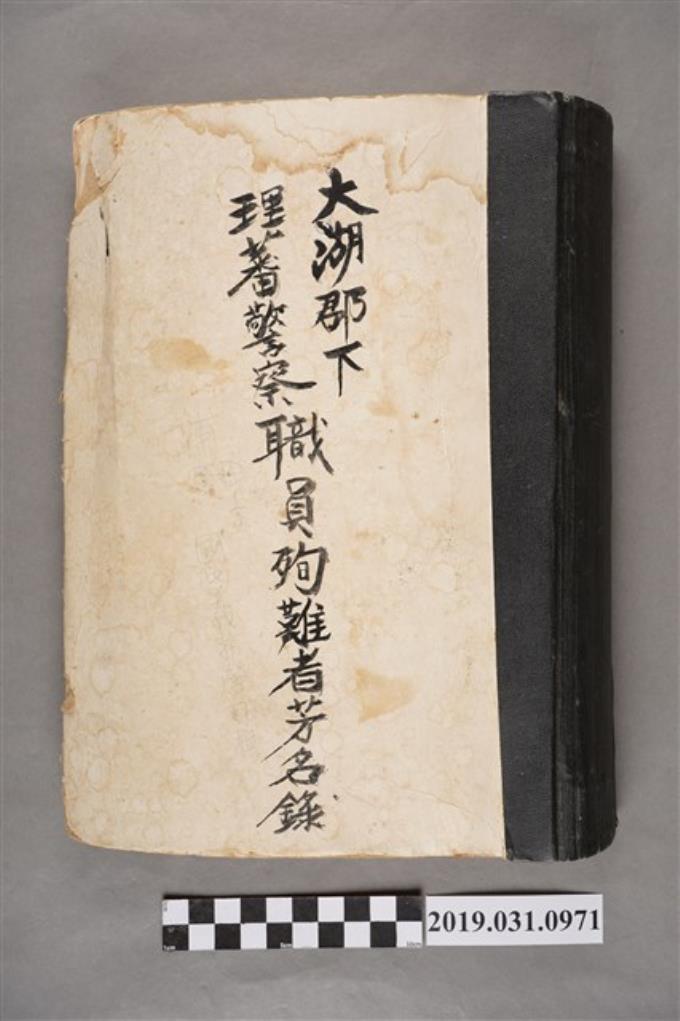 大湖郡下
理蕃警察職員殉難者芳名錄
2019.031.0971